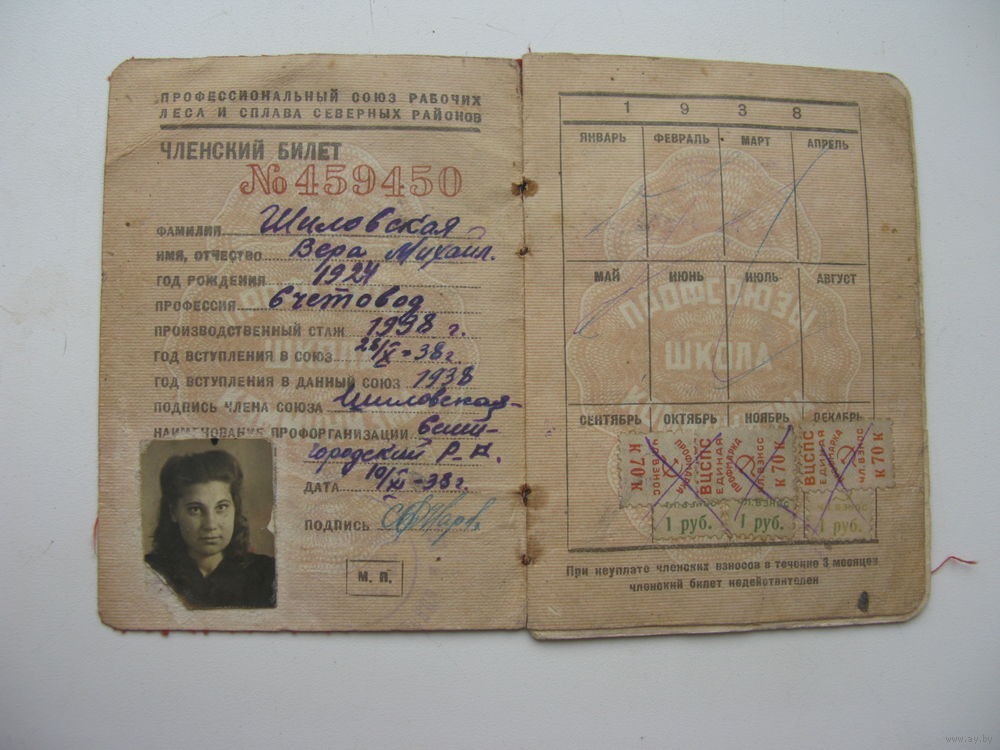 ПРОФЕССИОНАЛЬНЫЙ СОЮЗ РАБОЧИХ
ЛЕСА И СПЛАВА СЕВЕРНЫХ РАЙОНОВ
ЧЛЕНСКИЙ БИЛЕТ
№ 459450
ФАМИЛИЯ Шиловская
ИМЯ, ОТЧЕСТВО Вера Михаил.
ГОД РОЖДЕНИЯ 1924
ПРОФЕССИЯ Счетовод
ПРОИЗВОДСТВЕННЫЙ СТАЖ 1938 г.
ГОД ВСТУПЛЕНИЯ В СОЮЗ 28/X-38г.
ГОД ВСТУПЛЕНИЯ В ДАННЫЙ СОЮЗ 1938
ПОДПИСЬ ЧЛЕНА СОЮЗА Шиловская
НАИМЕНОВАНИЕ ПРОФОРГАНИЗАЦИИ
городский Р.К.
ДАТА 10/XI-38г.
ПОДПИСЬ
М. П.
1 9 3 8
ЯНВАРЬ ФЕВРАЛЬ МАРТ АПРЕЛЬ
МАЙ ИЮНЬ ИЮЛЬ АВГУСТ
ПРОФСОЮЗЫ
ШКОЛА
СЕНТЯБРЬ ОКТЯБРЬ НОЯБРЬ ДЕКАБРЬ
К 70 К
ПРОФМАРКА
ВЦСПС
ЕДИНАЯ
ПРОФМАРКА
ЧЛ. ВЗНОС
К 70 К
ВЦСПС
ЕДИНАЯ
ПРОФМАРКА
ЧЛ. ВЗНОС
К 70 К
1 руб. 1 руб. 1 руб.
При неуплате членских взносов в течение 3 месяцев
членский билет недействителен
www.ay.by